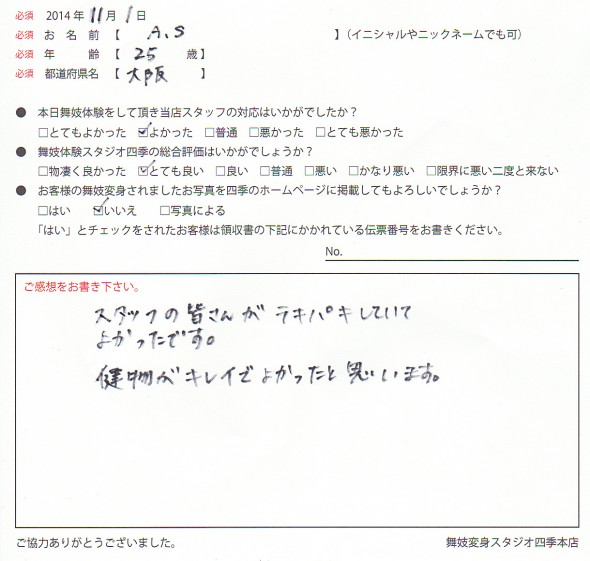 必須 2014年 11月 1日
必須 お名前【 A.S 】(イニシャルやニックネームでも可)
必須 年 齢【 25 歳】
必須 都道府県名【 大阪 】
● 本日舞妓体験をして頂き当店スタッフの対応はいかがでしたか？
□とてもよかった ☑よかった □普通 □悪かった □とても悪かった
● 舞妓体験スタジオ四季の総合評価はいかがでしょうか？
□物凄く良かった ☑とても良い □良い □普通 □悪い □かなり悪い □限界に悪い二度と来ない
● お客様の舞妓変身されましたお写真を四季のホームページに掲載してもよろしいでしょうか？
□はい ☑いいえ □写真による
「はい」とチェックをされたお客様は領収書の下記にかかれている伝票番号をお書きください。
No.
ご感想をお書き下さい。
スタッフの皆さんがテキパキしていて
よかったです。
建物がキレイでよかったと思います。
ご協力ありがとうございました。 舞妓変身スタジオ四季本店